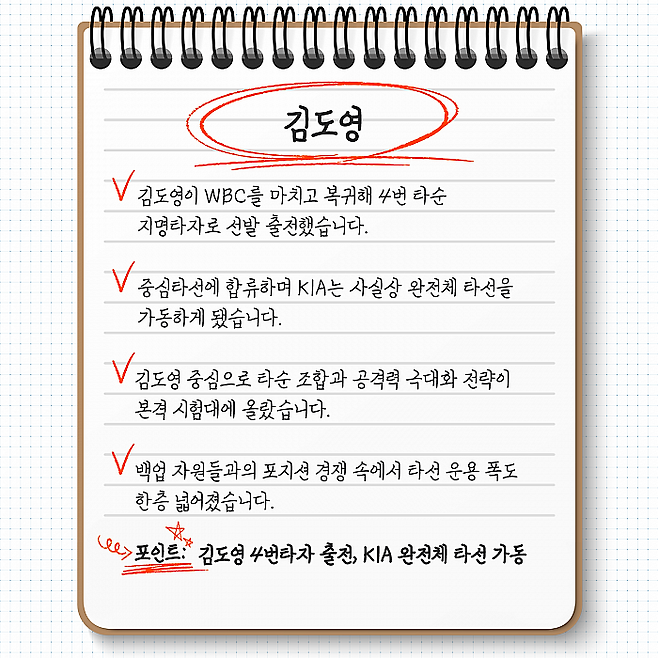 김도영
김도영이 WBC를 마치고 복귀해 4번 타순
지명타자로 선발 출전했습니다.
중심타선에 합류하며 KIA는 사실상 완전체 타선을
가동하게 됐습니다.
김도영 중심으로 타순 조합과 공격력 극대화 전략이
본격 시험대에 올랐습니다.
백업 자원들과의 포지션 경쟁 속에서 타선 운용 폭도
한층 넓어졌습니다.
포인트: 김도영 4번타자 출전, KIA 완전체 타선 가동